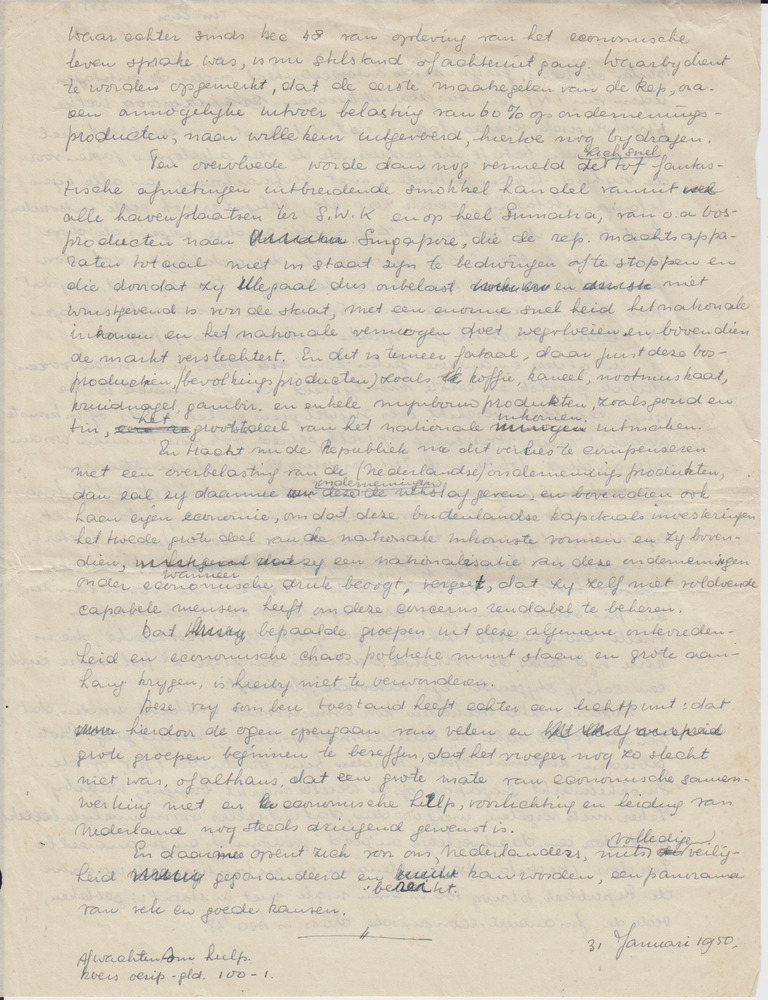 Waar echter sinds Dec 48 van opleving van het economische
leven sprake was, is nu stilstand of achteruitgang. Waarbij dient
te worden opgemerkt, dat de eerste maatregelen van de Rep,
een onmogelijke uitvoer belasting van 60% op ondernemings-
producten, naar willekeur uitgevoerd, hiertoe nog bijdragen.
Ten overvloede worde dan nog vermeld de zich snel tot fantas-
tische afmetingen uitbreidende smokkel handel vanuit
alle havenplaatsen ter S.W.K en op heel Sumatra, van o.a bos-
producten naar Singapore, die de rep. machtsappa-
raten totaal niet in staat zijn te bedwingen ofte stoppen en
die doordat zij illegaal dus onbelast en niet
winstgevend is voor de staat, met een enorme snelheid het nationale
inkomen en het nationale vermogen doet wegvloeien en bovendien
de markt verslechtert. En dit is temeer fataal, daar juist deze bos-
producten, (bevolkingsproducten) zoals koffie, kaneel, nootmuskaat,
kruidnagel, gambir. en enkele mijnbouw produkten, zoals goud en
tin, het grootste deel van het nationale inkomen uitmaken.
En tracht nu de Republiek nu dit verlies te compenseren
met een overbelasting van de (Nederlandse) ondernemings produkten,
dan zal zij daarmee deze ondernemingen de nekslag geven, en bovendien ook
haar eigen economie, omdat deze buitenlandse kapitaalsinvesteringen
het tweede grote deel van de nationale inkomste vormen en zij boven-
dien, wanneer zij een nationalisatie van deze ondernemingen
onder economische druk beoogt, vergeet, dat zij zelf niet voldoende
capabele mensen heeft om deze concerns rendabel te beheren.
Dat bepaalde groepen uit deze algemene ontevreden-
heid en economische chaos politieke munt slaan en grote aan-
hang krijgen, is hierbij niet te verwonderen.
Deze vrij sombere toestand heeft echter een lichtpunt: dat
hierdoor de ogen opengaan van velen en
grote groepen beginnen te beseffen, dat het vroeger nog zo slecht
niet was, of althans, dat een grote mate van economische samen-
werking met en economische hulp, voorlichting en leiding van
Nederland nog steeds dringend gewenst is.
En daarmee opent zich voor ons, Nederlanders, mits volledige veilig-
heid gegarandeerd en bereikt kan worden, een panorama
van vele en goede kansen.
31 Januari 1950.
Afwachten om hulp.
koers oerip-gld. 100-1.